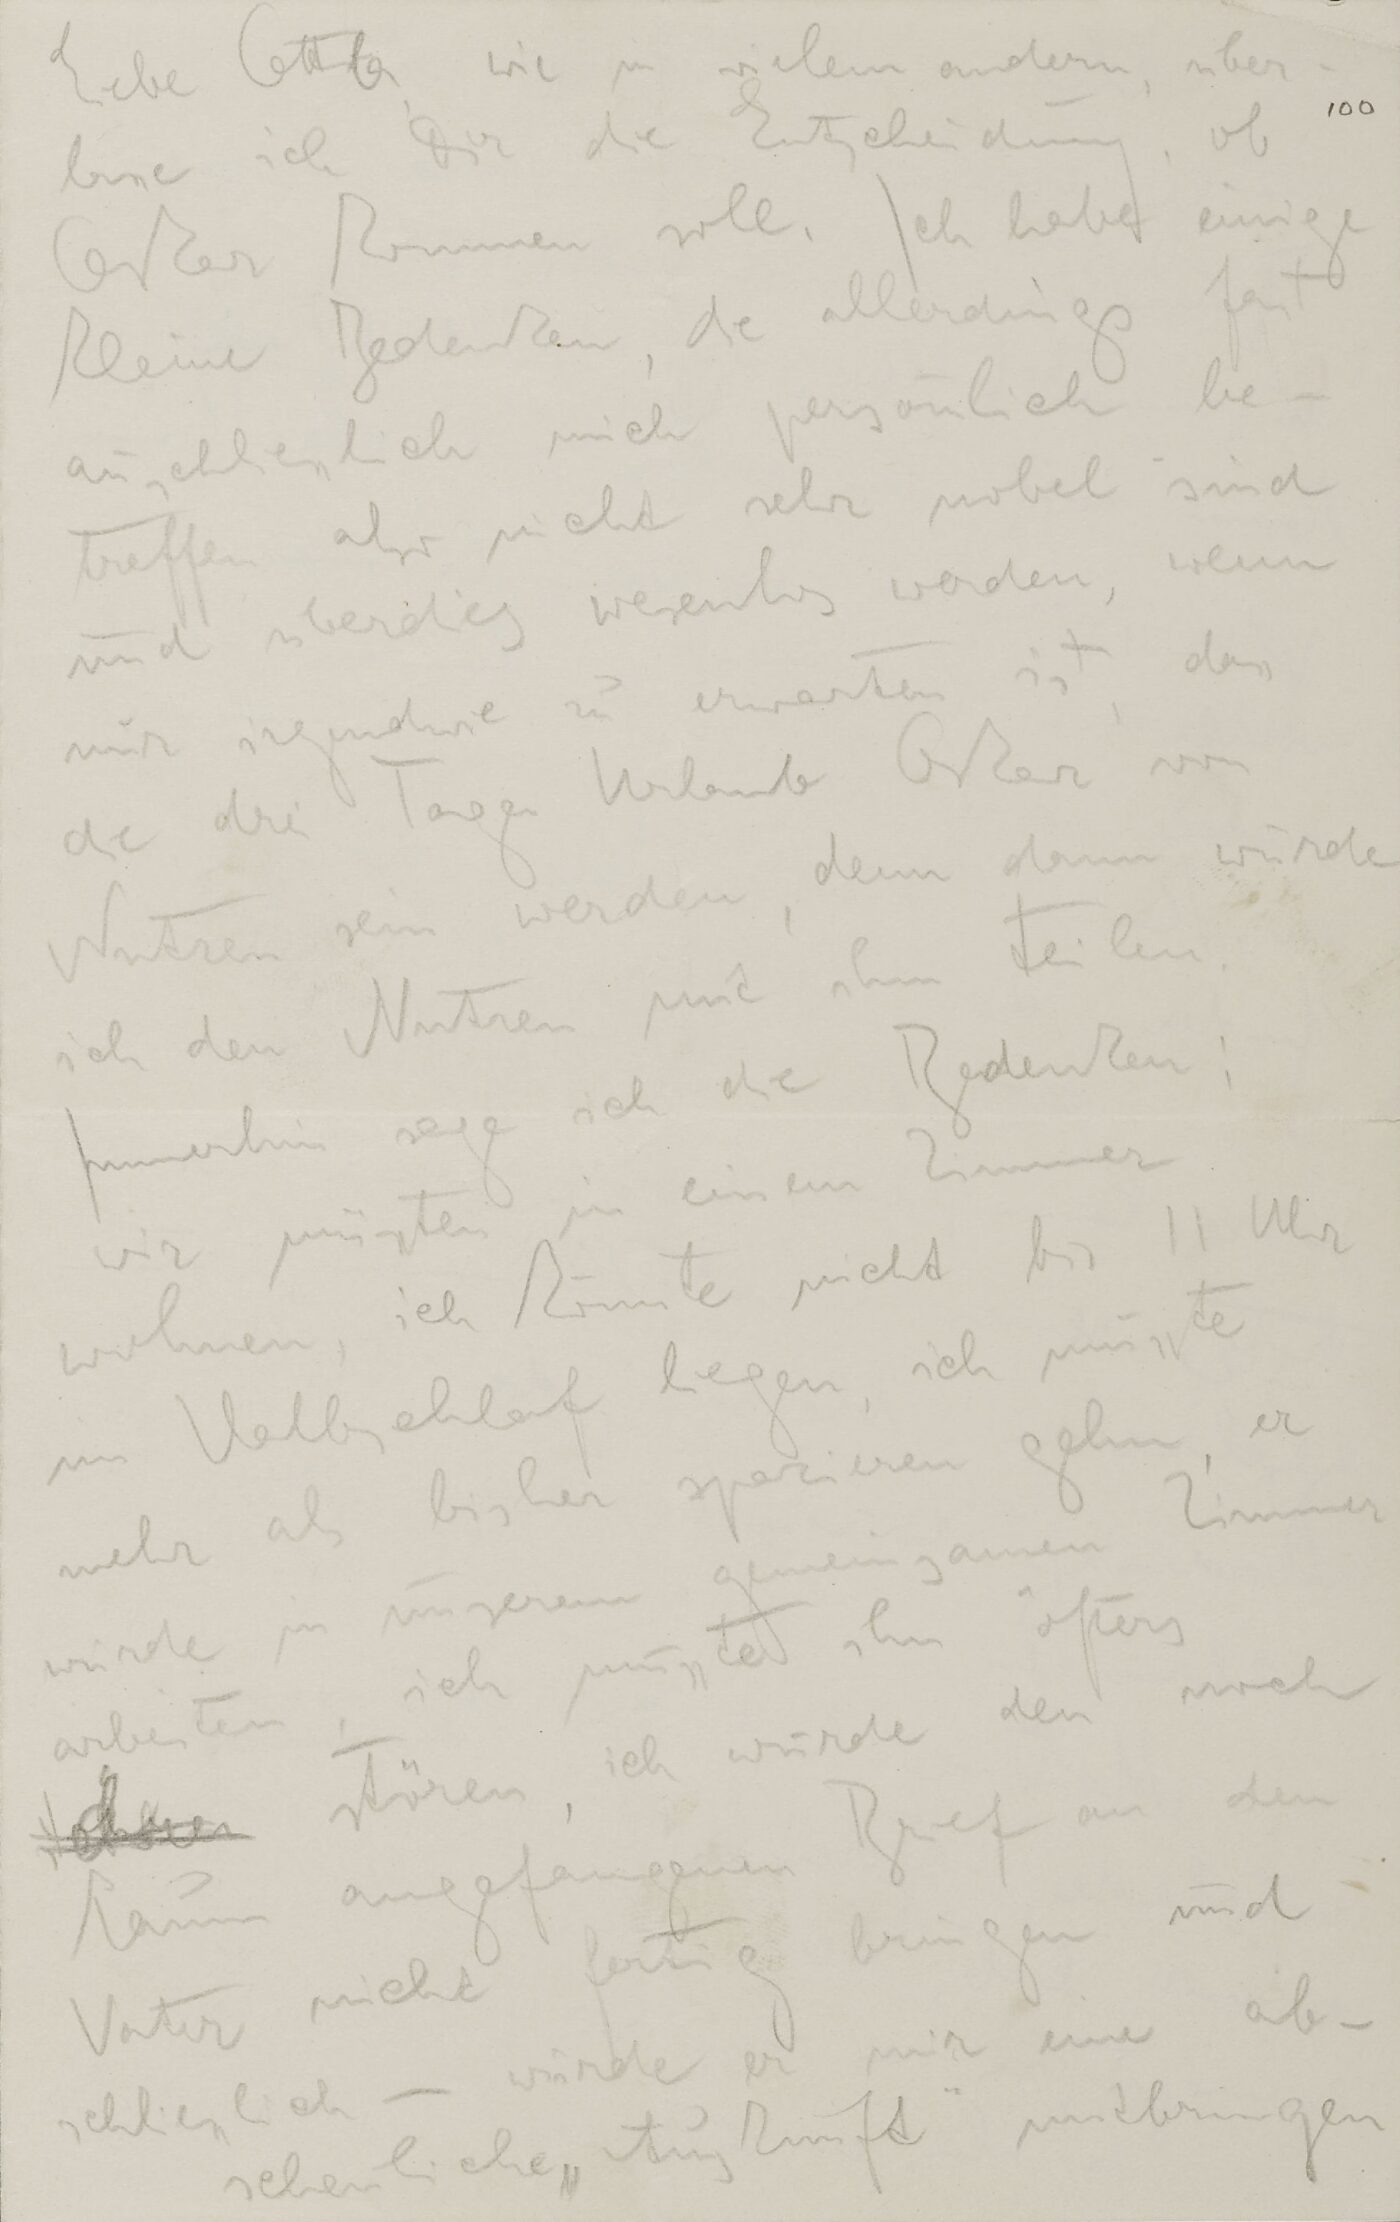 Liebe Ottla, wie in vielem andern, über-
100
lasse ich Dir die Entscheidung, ob
Oskar kommen soll. Ich habe einige
kleine Bedenken, die allerdings fast
ausschliesslich mich persönlich be-
treffen also nicht sehr nobel sind
und überdies wesenlos werden, wenn
nur irgendwie zu erwarten ist, dass
die drei Tage Urlaub Oskar von
Nutzen sein werden, denn dann würde
ich den Nutzen mit ihm teilen.
Immerhin sage ich die Bedenken:
wir müssten in einem Zimmer
wohnen, ich könnte nicht bis 11 Uhr
im Halbschlaf liegen, ich müsste
mehr als bisher spazieren gehn, er
würde in unserem gemeinsamen Zimmer
arbeiten, ich müsste ihn öfters
stören, ich würde den noch
kaum angefangenen Brief an den
Vater nicht fertig bringen und
schliesslich — würde er mir eine ab-
scheuliche „Auskunft" mitbringen